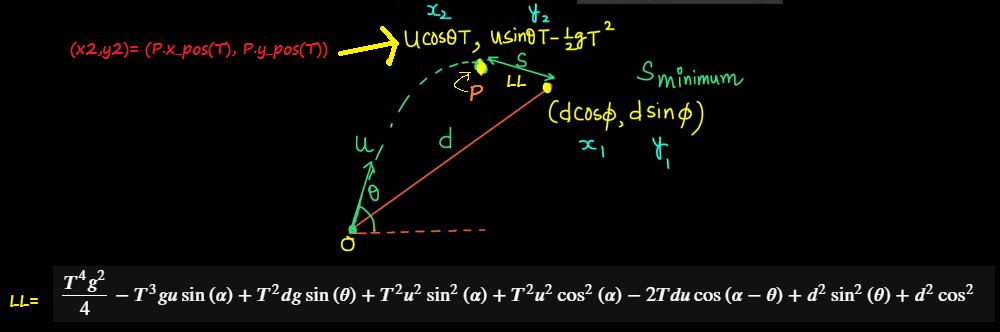 x₂ y₂
(x2,y2)= (P.x_pos(T), P.y_pos(T))
ucosθT, usinθT-½gT²
S
LL
S minimum
P
(dcosϕ, dsinϕ)
x₁ y₁
d
u
θ
O
LL= T⁴g²/4 − T³gu sin (α) + T²dg sin (θ) + T²u² sin² (α) + T²u² cos² (α) − 2Tdu cos (α − θ) + d² sin² (θ) + d² cos²